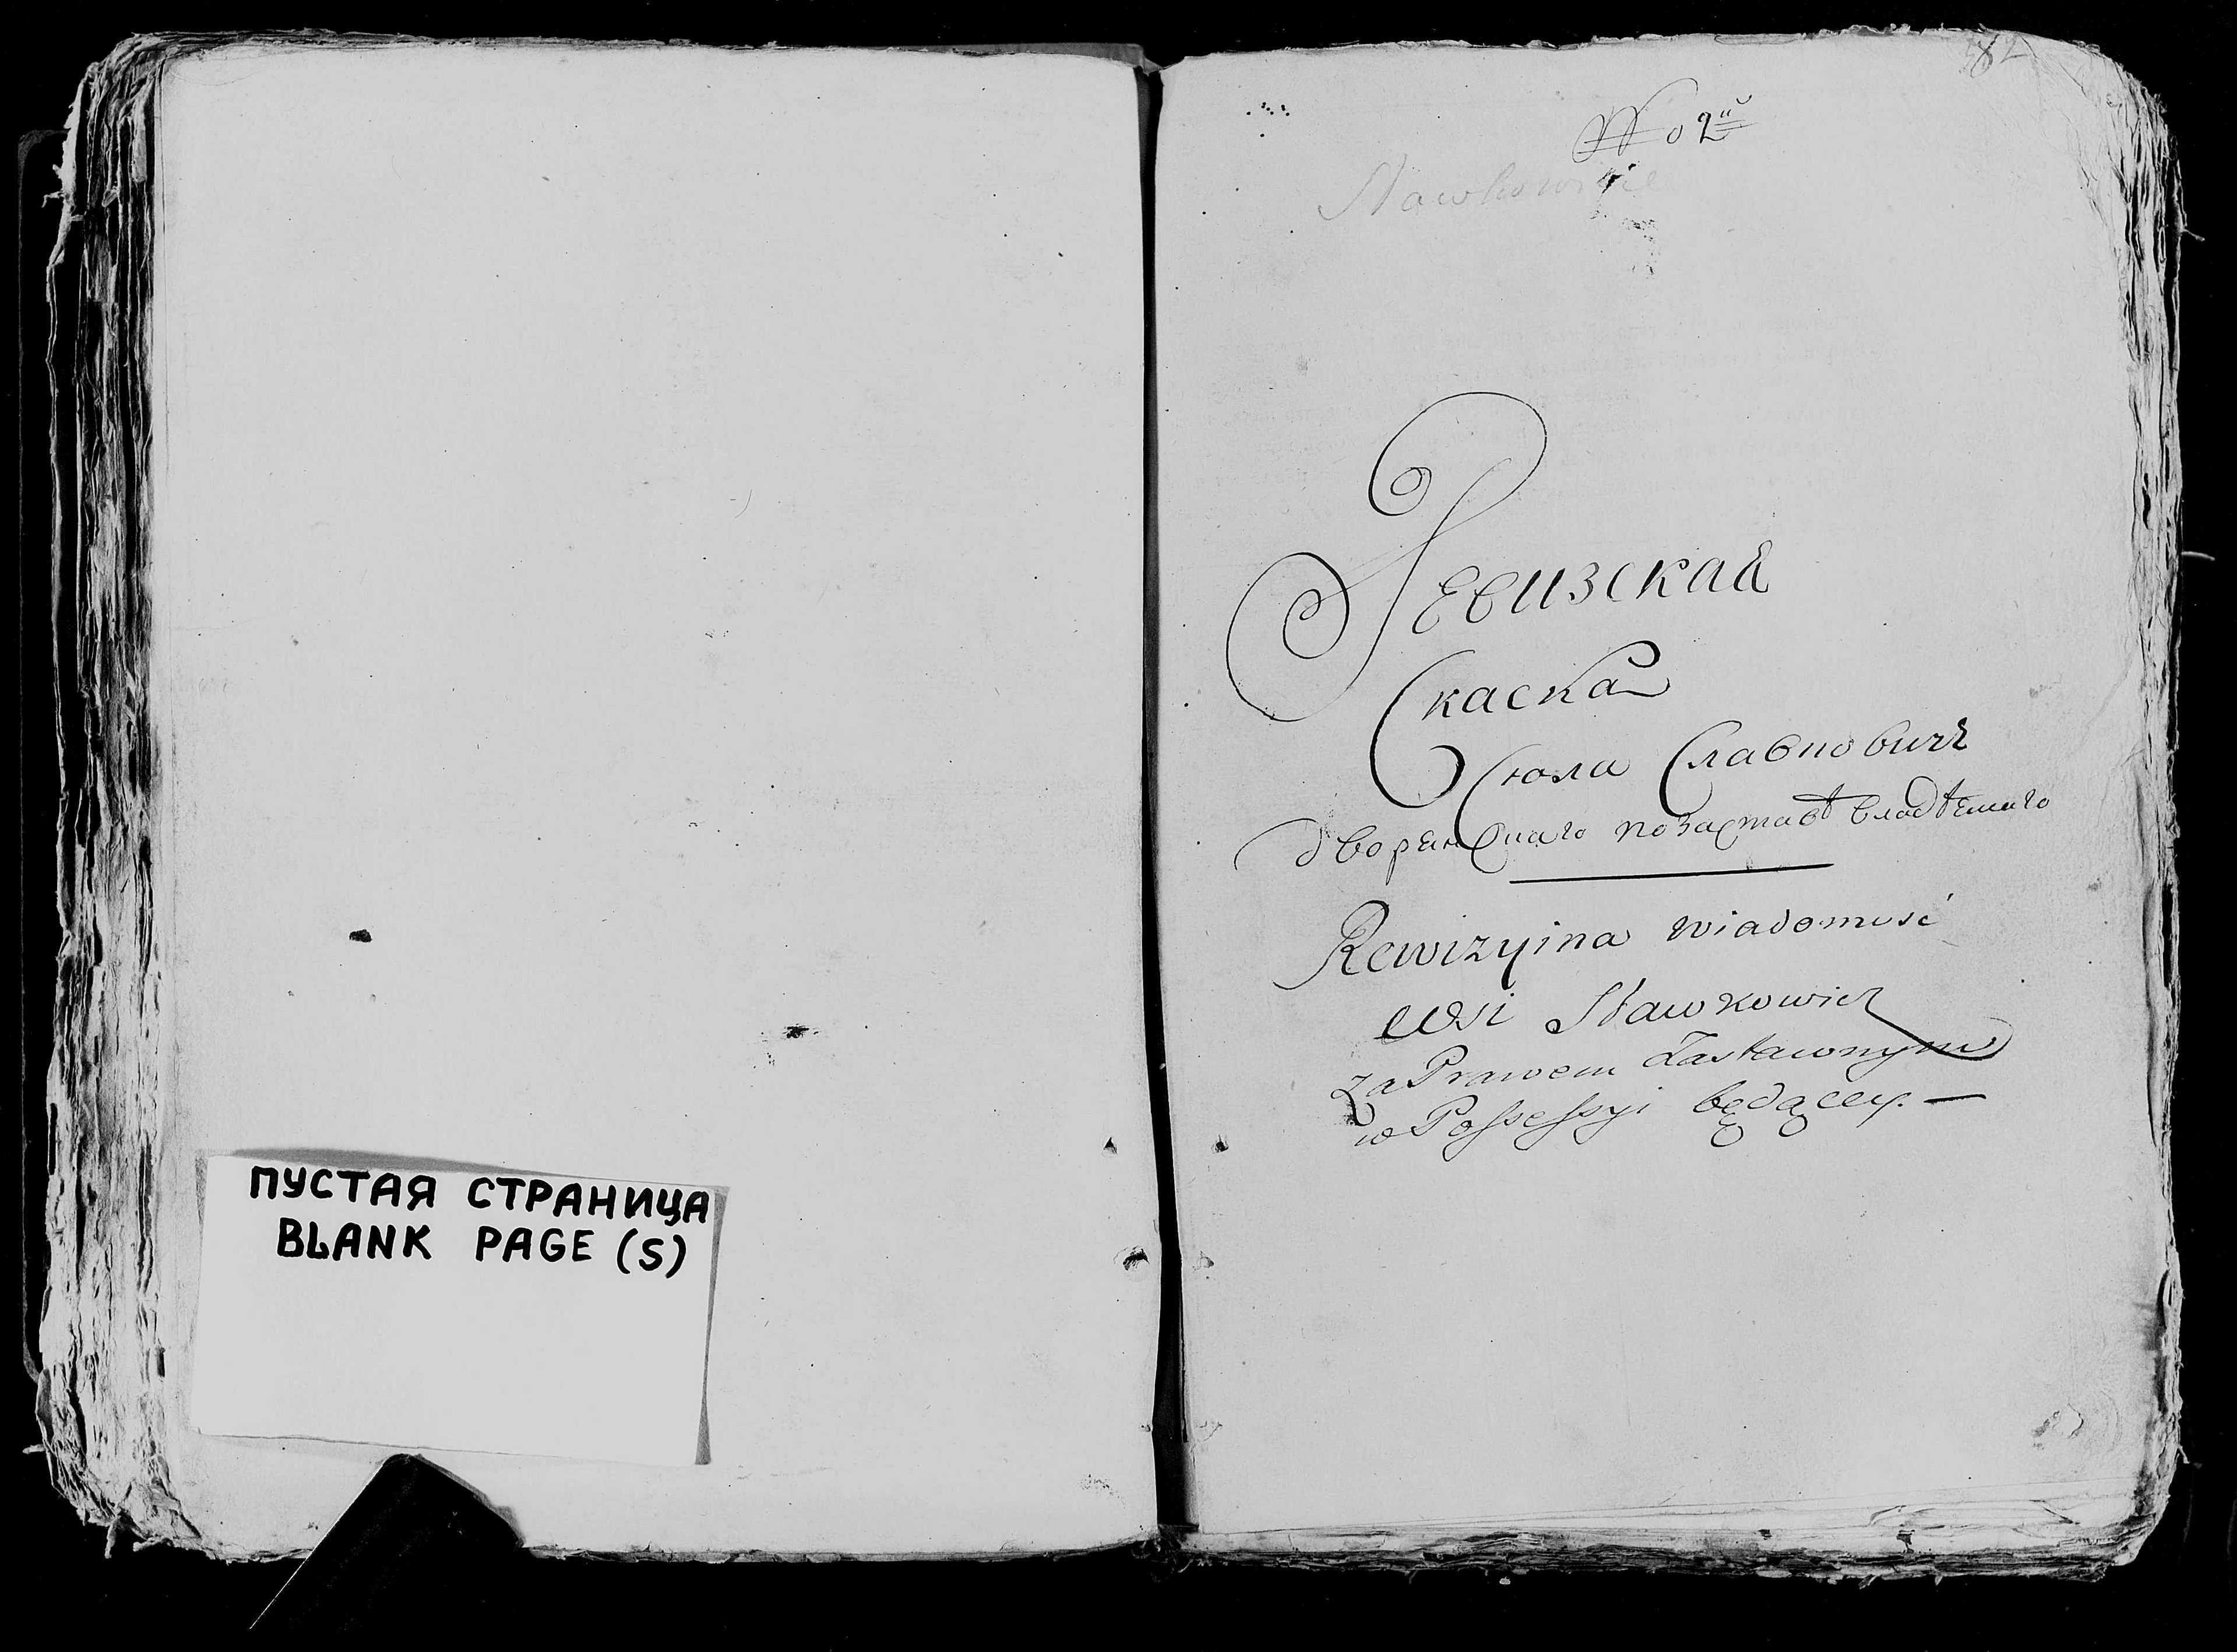 ПУСТАЯ СТРАНИЦА
BLANK PAGE (S)
82
No 2й
Slawkowicz
Ревизская
Скаска
Сюла Славковичъ
дворянскаго позаставѣ владѣемаго
Rewizyina wiadomość
wsi Sławkowicz
za Prawem Zastawnym
w Possessyi będącey. —